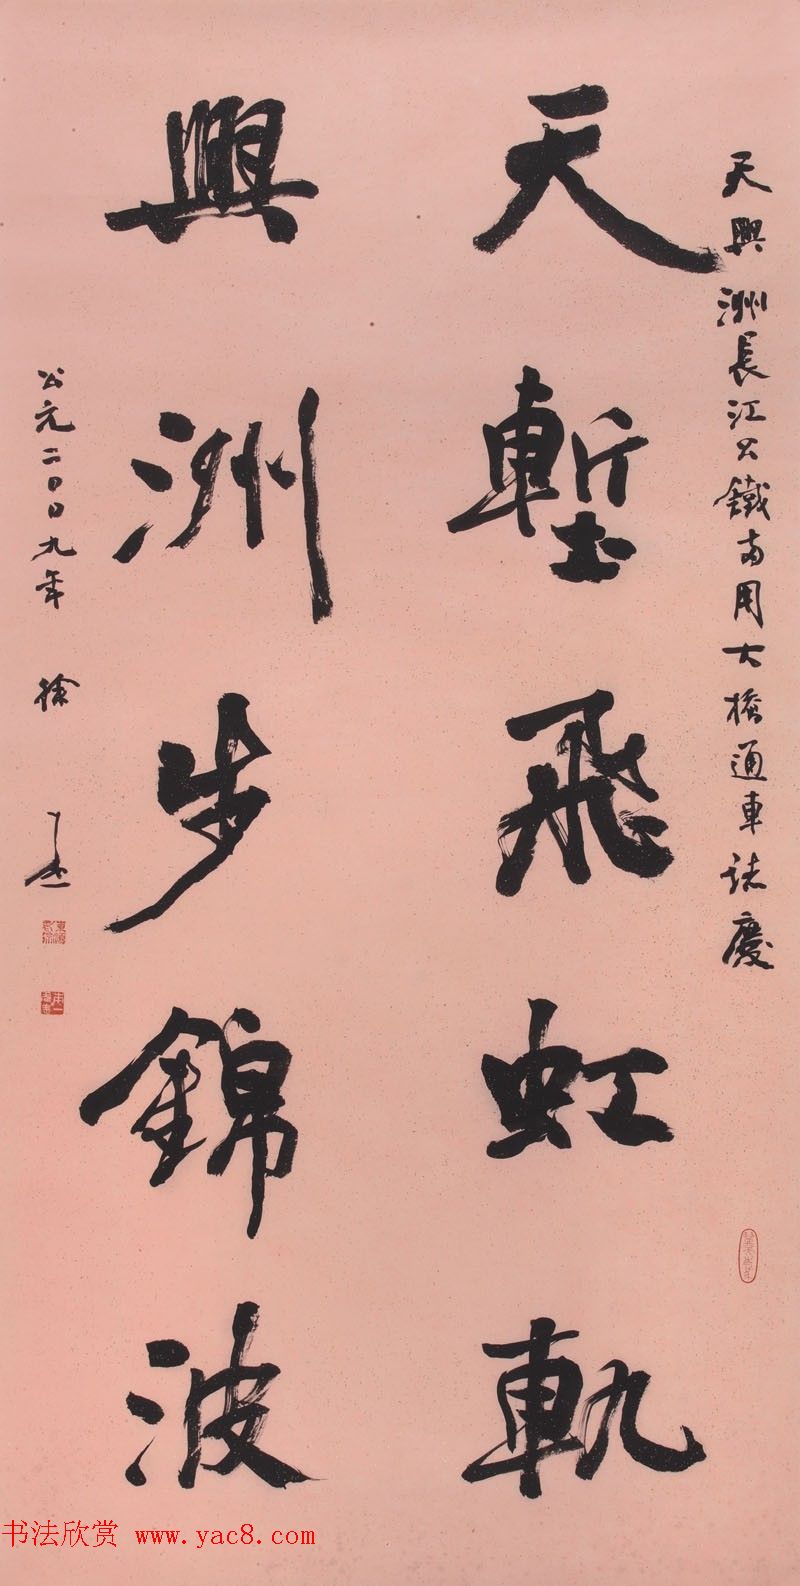 天興洲長江公鐵两用大橋通車誌慶
天塹飛虹軌
興洲步錦波
公元二〇〇九年 徐
书法欣赏 www.yac8.com